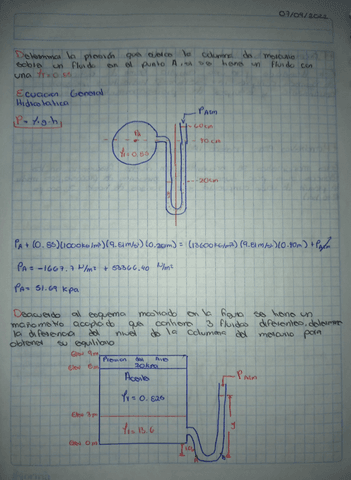 07/09/2022
Determinar la presión que ejerce la columna de mercurio
sobre un fluido en el punto A, si se tiene un fluido con
una γr=0.85
Ecuacion General
Hidrostatica
P= γ.g.h
PAtm
60cm
A
γr=0.85
20cm
PA + (0.85)(1000kg/m³)(9.81m/s²)(0.20m) = (13600kg/m³)(9.81m/s²)(0.40m) + Patm
PA = -1667.7 N/m² + 53366.40 N/m²
PA = 51.69 kpa
Deacuerdo al esquema mostrado en la figura se tiene un
manometro acoplado que contiene 3 fluidos diferentes, determinar
la diferencia del nivel de la columna del mercurio para
obtener su equilibrio
Elev 9m
Presion del Aire
30kpa
PAtm
Aceite
γr = 0.820
y
γr = 13.6
Elev 0m